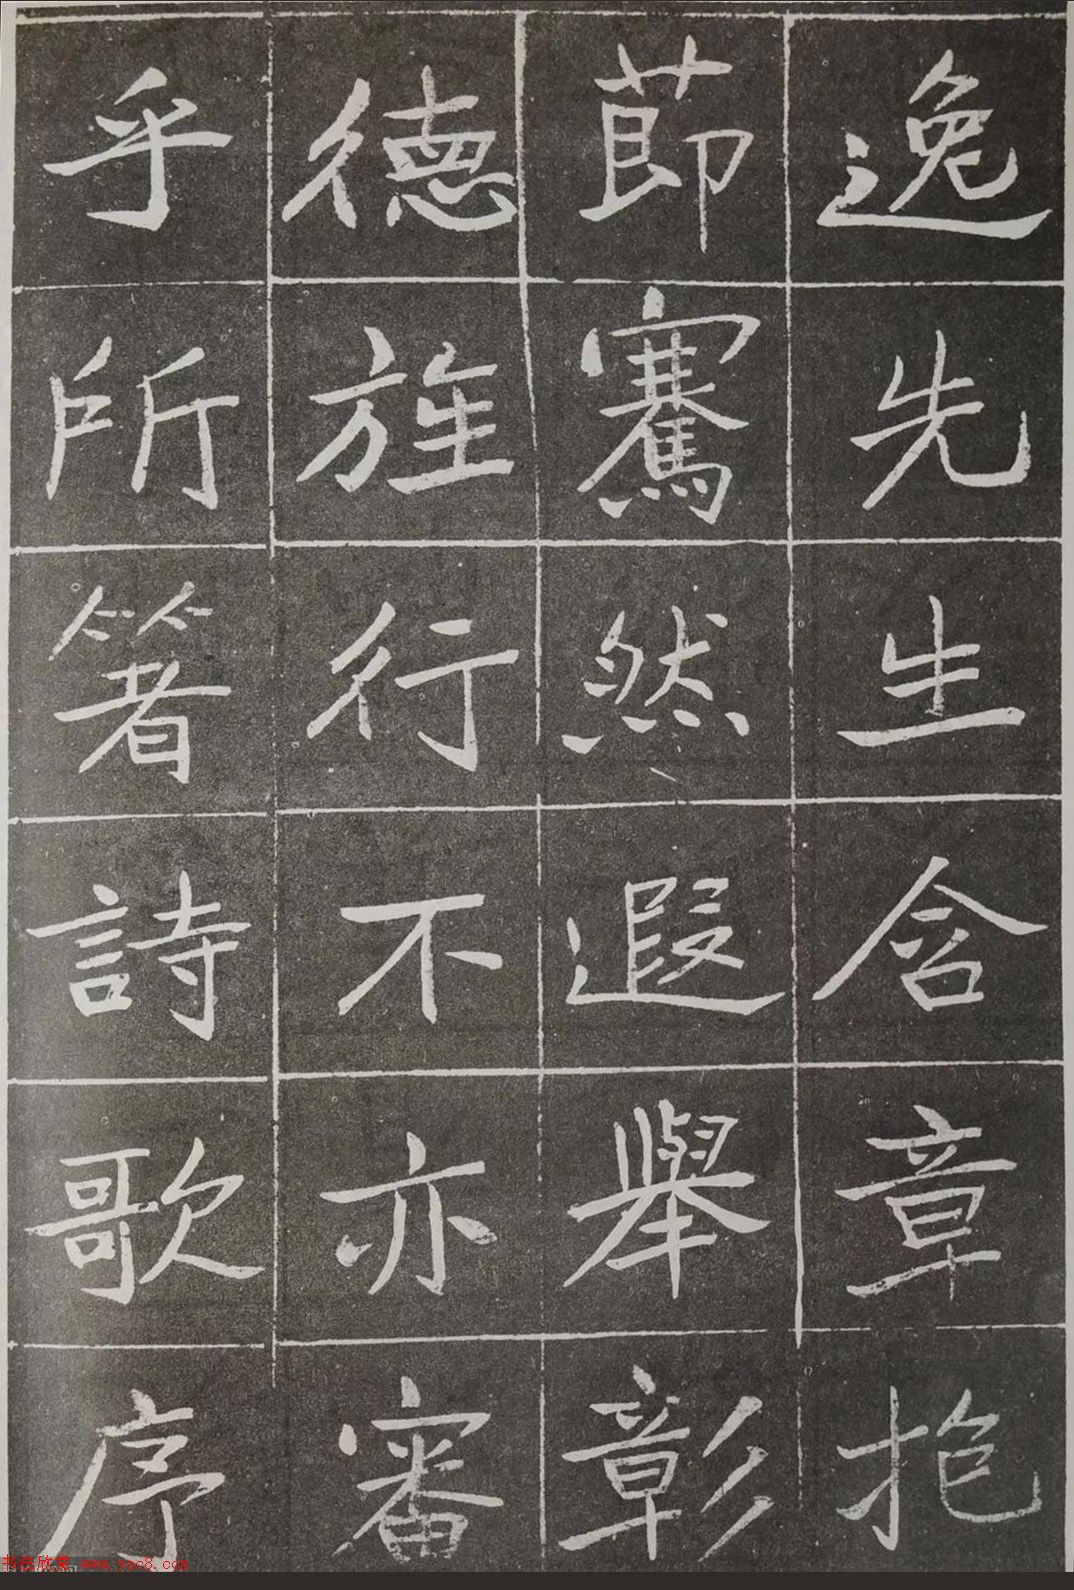 逸先生含章抱
莭騫然遐舉彰
德旌行不亦審
乎所箸詩歌序
书法欣赏 www.yac8.com